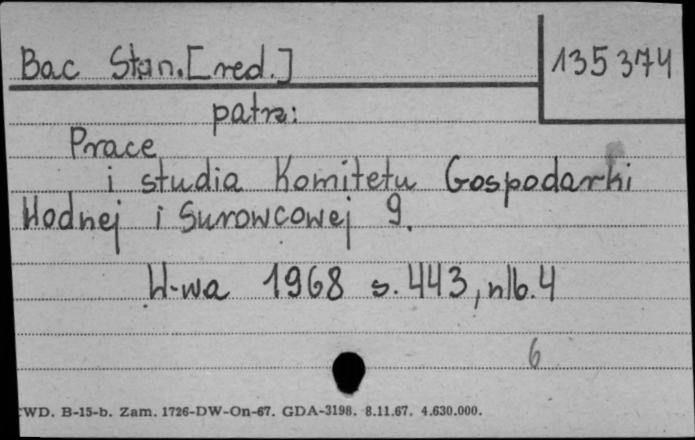 Bac Stan. [red.]
135 374
patrz:
Prace
i studia Komitetu Gospodarki
Wodnej i Surowcowej 9.
W-wa 1968 s. 443, nlb. 4
6
WD. B-15-b. Zam. 1726-DW-On-67. GDA-3198. 8.11.67. 4.630.000.